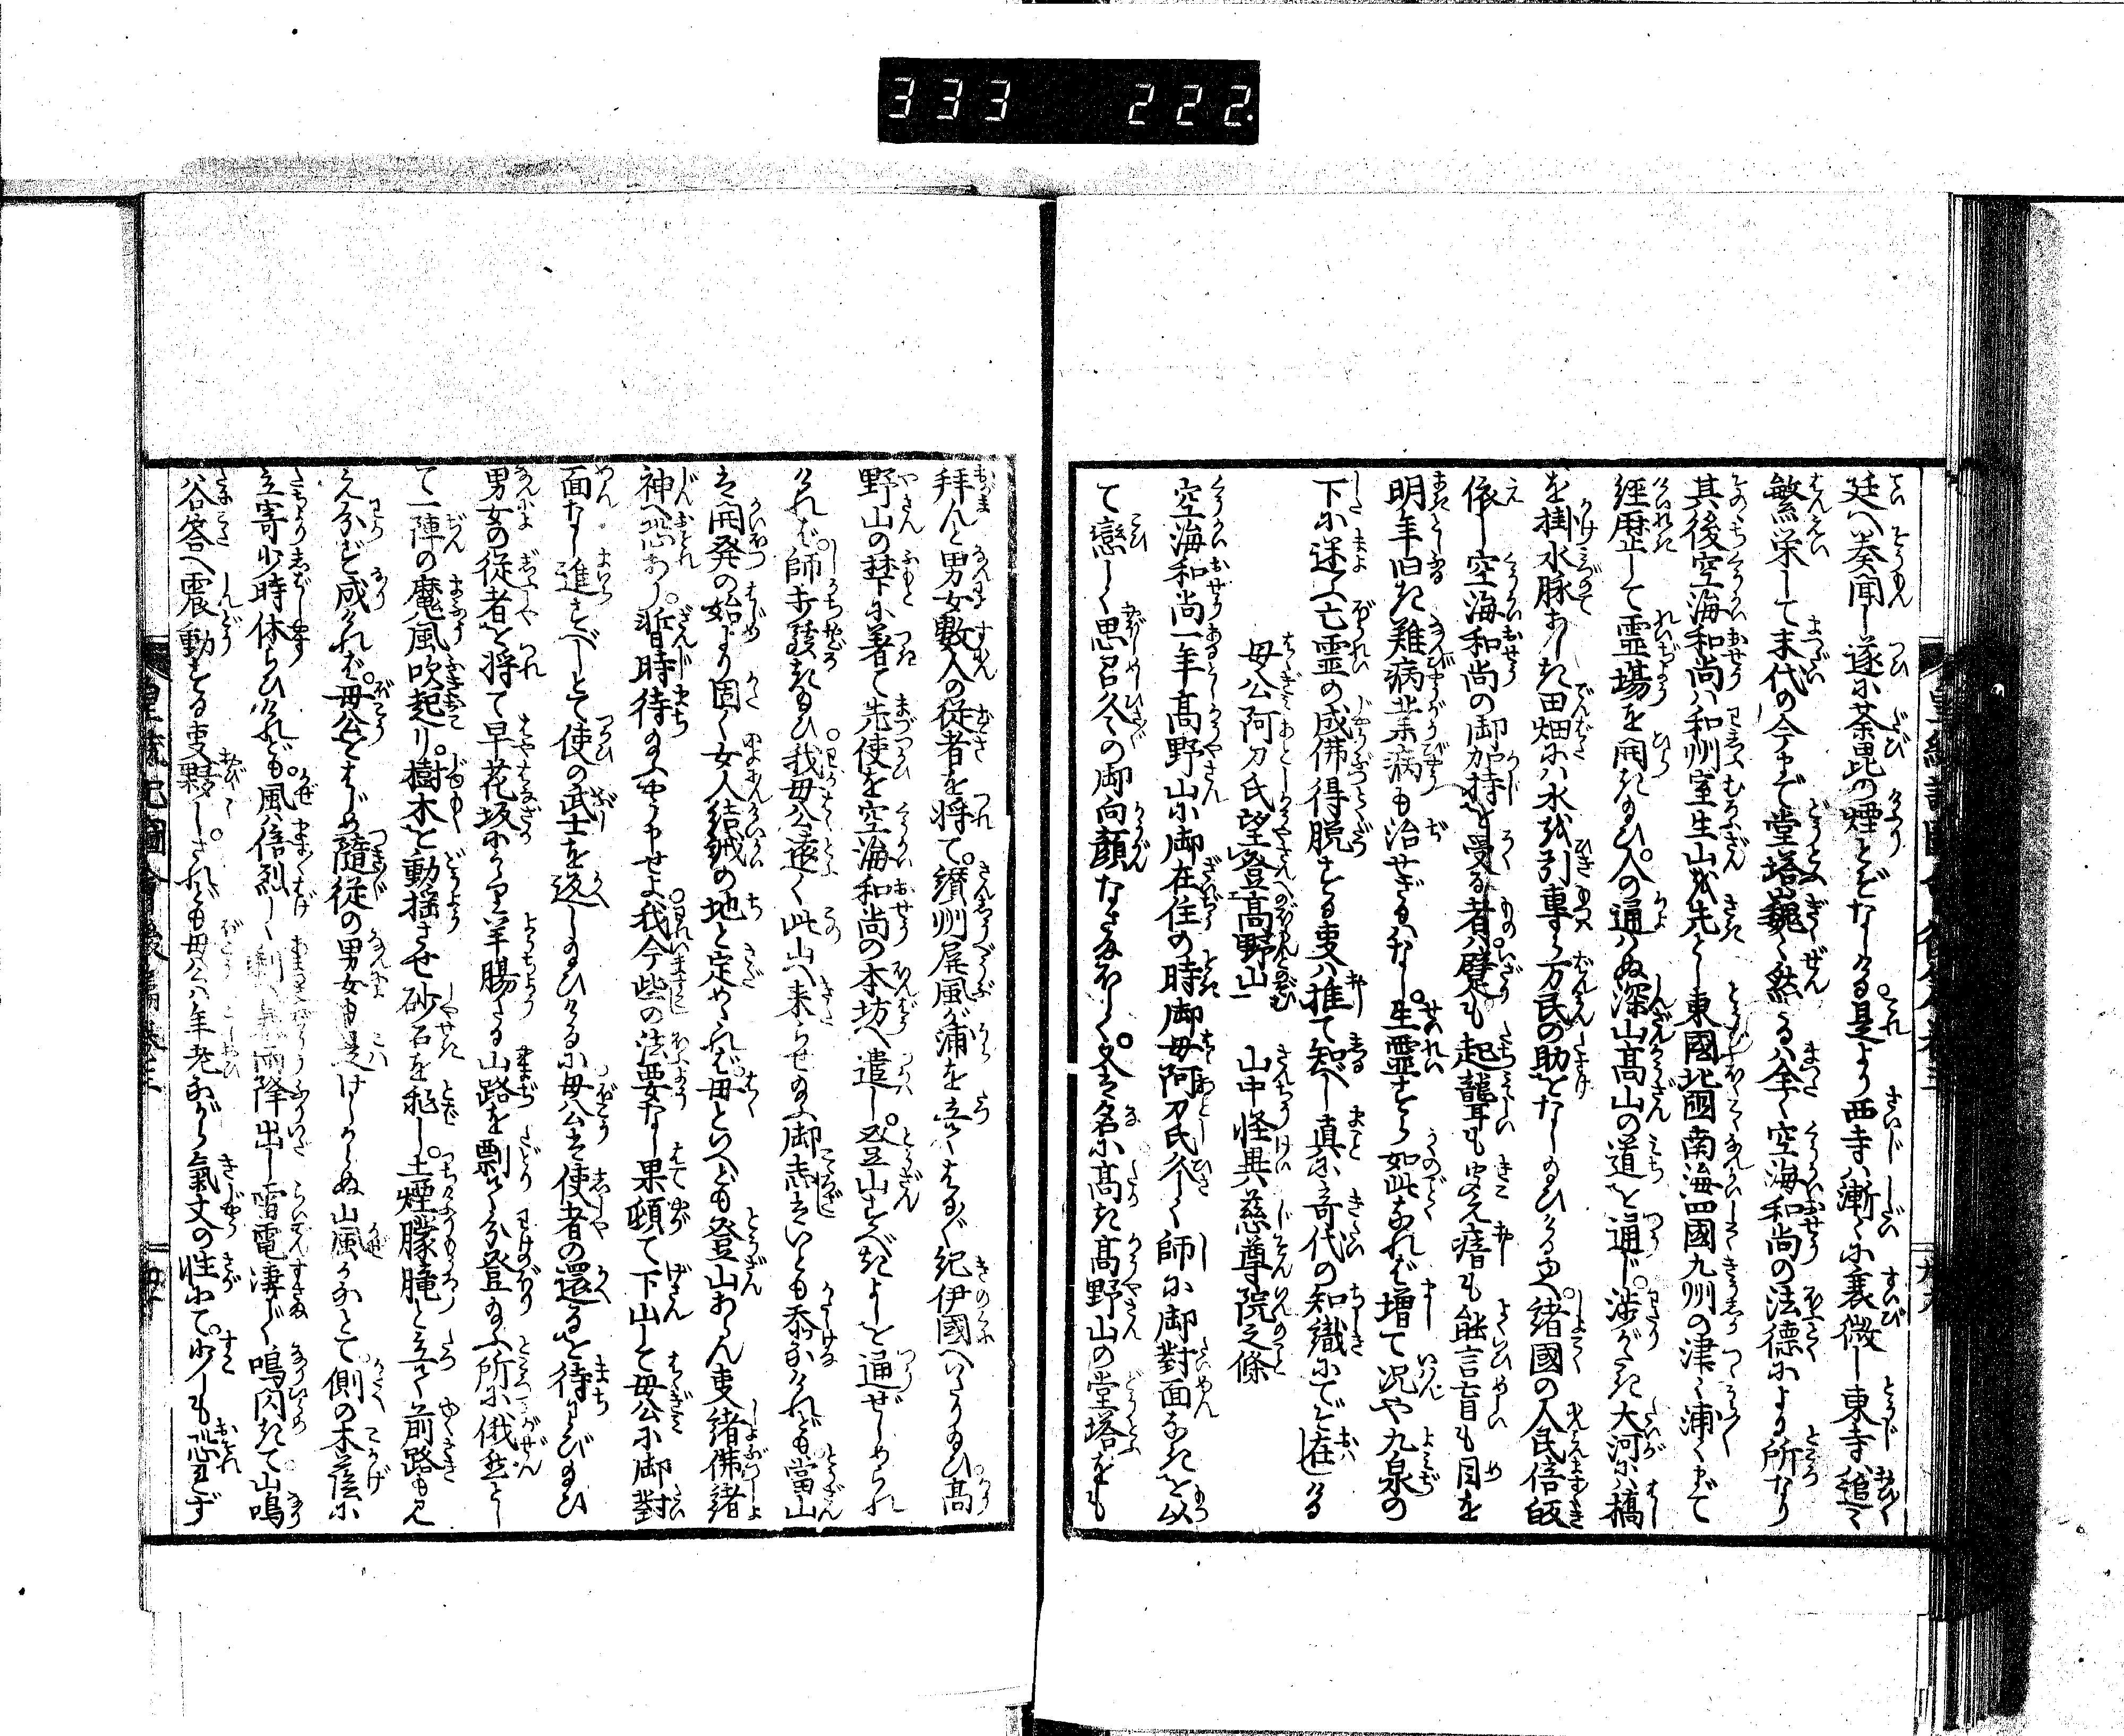 333 222.
廷へ奏聞し遂に荼毘の煙とぞなしける是より西寺ハ漸々に衰微し東寺ハ追々
繁栄して末代の今まで堂塔巍々然るハ全く空海和尚の法徳による所なり
其後空海和尚ハ和州室生山を先とし東國北國南海四國九州の津々浦々まで
経歴して霊場を開き給ひ人の通ハぬ深山高山の道を通じ渉がたき大河にハ橋
を掛水脉あしき田畑にハ水を引専ら万民の助となし給ひけるゆへ諸國の人民倍皈
依し空海和尚の御加持を受る者ハ躄も起聾も聞え瘖も能言盲も目を
明年旧き難病業病も治せざるハなし。生霊すら如此なれバ増て況や九泉の
下に迷ふ亡霊の成佛得脱する事ハ推て知べし真に竒代の知識にてぞ在しける
母公阿刀氏望登高野山 山中怪異慈尊院之條
空海和尚一年高野山に御在住の時御母阿刀氏久く師に御對面なきを以
て戀しく思召久々の御向顔なさまほしく。又ハ名に高き高野山の堂塔をも
拜んと男女數人の従者を将て。讃州屏風が浦を立てはるバる紀伊國へいたり給ひ高
野山の梺に著て先使を空海和尚の本坊へ遣し。登山すべきよしを通ぜしめられ
けれバ。師大に驚き給ひ我母公遠く此山へ来らせ給ふ御志ざしハいとも忝なけれども當山
ハ開発の始より固く女人結界の地と定めたれバ母といへども登山あらん事諸佛諸
神へ恐あり。暫時待給ふやう申せよ我今些の法要なし果頓て下山して母公に御對
面なし進すべしとて使の武士を返し給ひけるに母公ハ使者の還るを待わび給ひ
男女の従者を将て早花坂にかゝり羊腸たる山路を剽々分登給ふ所に俄然とし
て一陣の魔風吹起り。樹木を動揺させ砂石を飛し。土煙朦朧と立て前路も見
え分ず成けれバ。母公をはじめ隨従の男女も是ハけしからぬ山風かなとて側の木蔭に
立寄少時休らひけれども。風ハ倍烈しく剰へ暴雨降出し雷電凄じく鳴閃きて山鳴
谷答へ震動する事夥し。されども母公ハ年老ながら氣丈の性にて。少しも恐れず